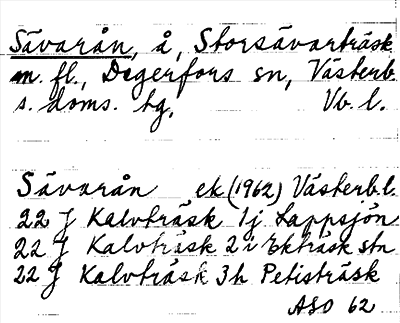 Sävarån, å, Storsävarträsk
m. fl., Degerfors sn, Västerb.
s. doms. tg. Vb. l.
Sävarån ek (1962) Västerb. l.
22 J Kalvträsk 1j Lappsjön
22 J Kalvträsk 2i Ekträsk stn
22 J Kalvträsk 3h Petisträsk
ASO 62